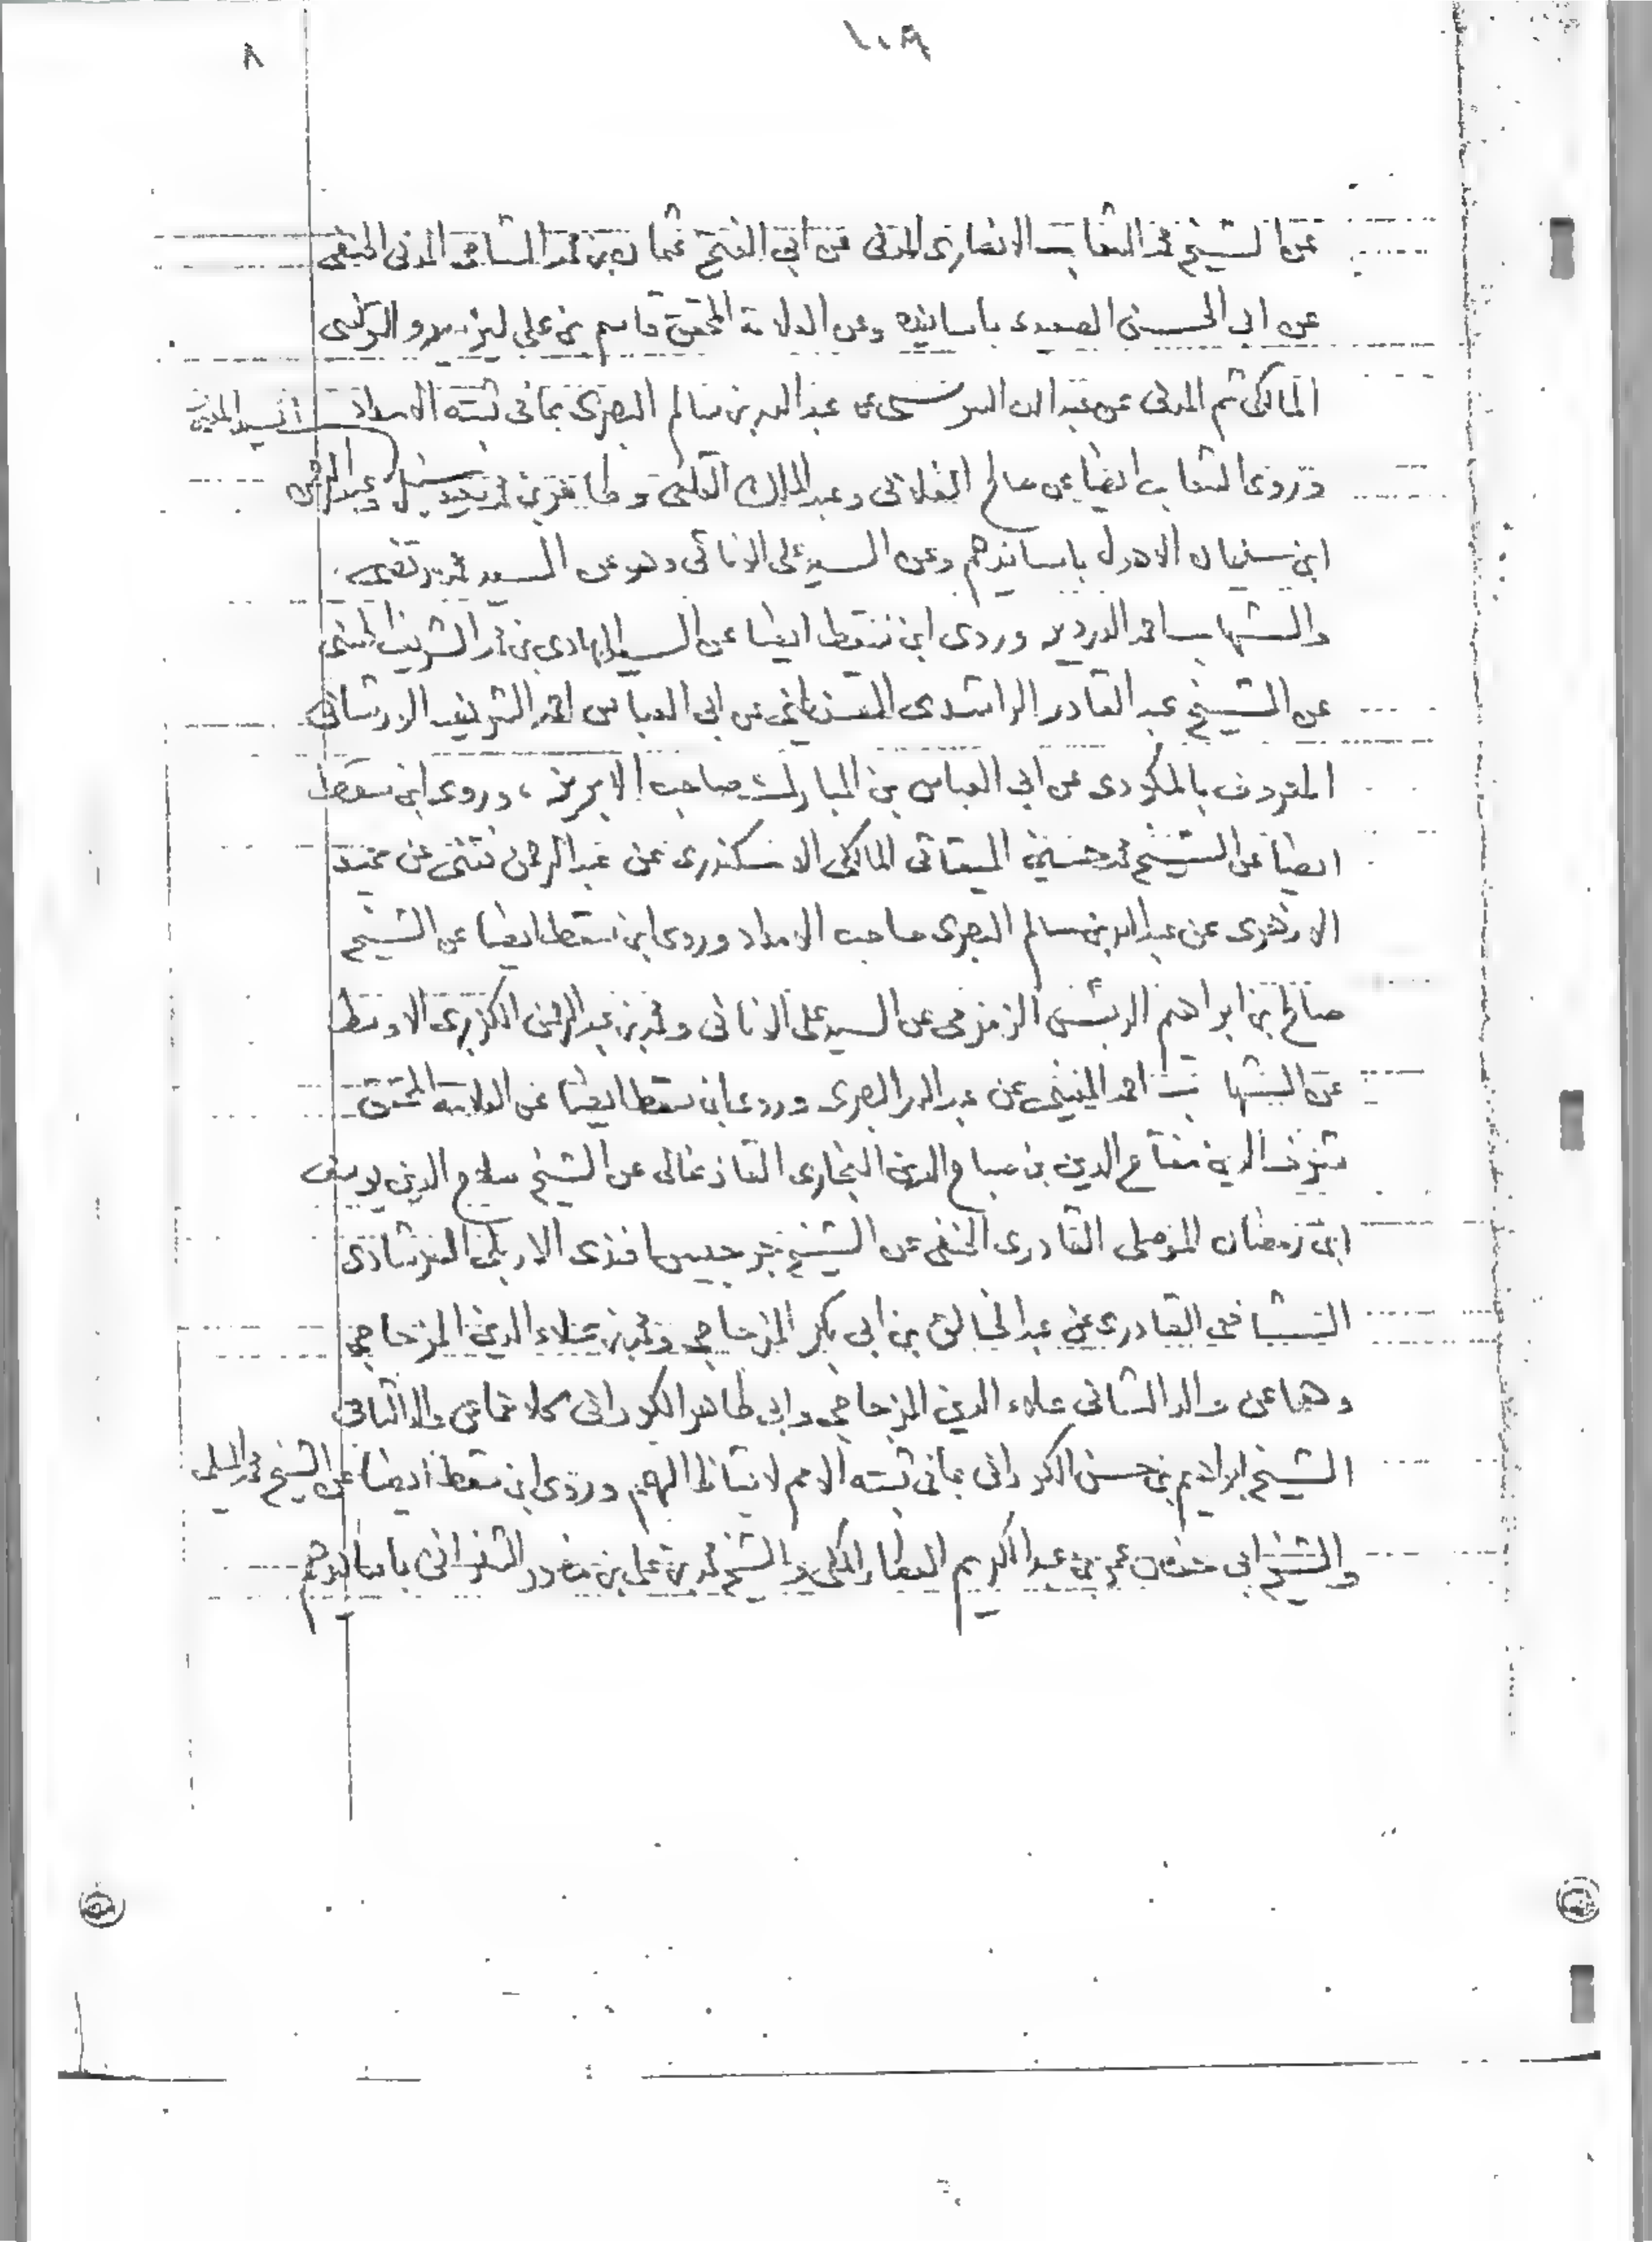 ١٠٨
٨
عن الشيخ محمد الشعاب الانصارى المدنى عن ابى الفتح عثمان بن محمد الشامى المدنى الحنفى
عن ابى الحسن الصعيدى باسانيده وعن العلامة المحقق قاسم بن على التونسى
المالكى ثم المدنى عن عبد الله السوسى عن عبد الله بن سالم البصرى بما فى ثبته الامداد
وروى الشعاب ايضا عن صالح الفلانى وعبد الملك القلعى وطاهر بن محمد سعيد سنبل وعبد الرحمن
ابن سليمان الاهدل باسانيدهم وعن السيد على الونائى وهو عن السيد محمد مرتضى
والشهاب احمد الدردير وروى ابن سقط ايضا عن السيد الهادى بن محمد الشريف الحسنى
عن الشيخ عبد القادر الراشدى القسنطينى عن ابى العباس احمد الشريف الورشانى
المعروف بالمكودى عن ابى العباس بن المبارك صاحب الابريز ، وروى ابن سقط
ايضا عن الشيخ محمد المالكى الاسكندرى عن عبد الرحمن عن عيد
الازهرى عن عبد الله بن سالم البصرى صاحب الامداد وروى ابن سقط ايضا عن الشيخ
صالح بن ابراهيم الريس الزمزمى عن السيد على الونائى ومحمد بن عبد الرحمن الكزبرى الاوسط
عن الشهاب احمد المنينى عن عبد الله البصرى وروى ابن سقط ايضا عن العلامة المحقق
شرف الدين مفتاح الدين بن صباح الدين البخارى عن الشيخ صلاح الدين يوسف
ابن رمضان الموصلى القادرى الحنفى عن الشيخ جرجيس افندى الاربلى
الشافعى القادرى عن عبد الخالق بن ابى بكر المزجاجى ومحمد بن علاء الدين المزجاجى
وهما عن والد الثانى علاء الدين المزجاجى وابى طاهر الكورانى كلاهما عن والد الثانى
الشيخ ابراهيم بن حسن الكورانى بما فى ثبته الامم لايقاظ الهمم وروى ابن سقط ايضا عن الشيخ محمد
والشيخ ابى حفص عمر بن عبد الكريم العطار المكى والشيخ محمد بن على بن منصور الشنوانى باسانيدهم